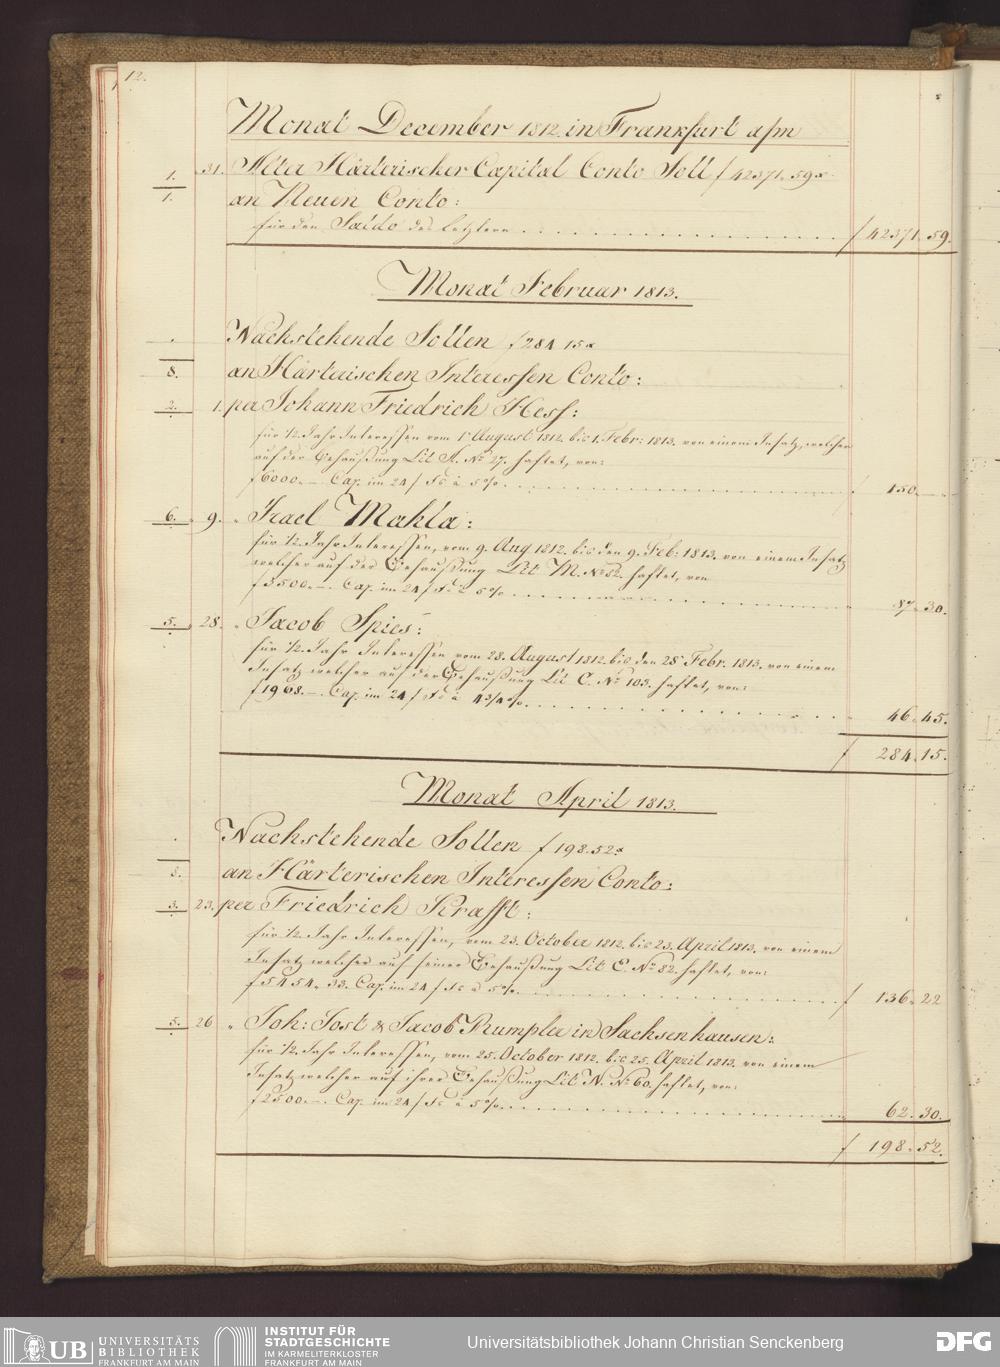 12.
Monat December 1812 in Frankfurt a/m
1. 31. Alter Härterischer Capital Conto Soll f 42371. 59x.
1. an Neuen Conto:
für den Saldo des letztern f 42371. 59.
Monat Februar 1813.
Nachstehende Sollen f 284 15x
8. an Härterischen Interessen Conto:
2. 1. per Johann Friedrich Hess:
für ½ Jahr Interessen vom 1t August 1812. bis 1. Febr: 1813. von einem Insatz, welcher
auf der Behaußung Lit A. No 27. haftet, von:
f 6000.—. Cap. im 24 f Fs à 5%. 150.—.
6. 9. " Israel Mahla:
für ½ Jahr Interessen, vom 9. Aug 1812. bis den 9. Feb: 1813. von einem Insatz
welcher auf der Behaußung Lit M. No 82. haftet, von
f 3500.—. Cap. im 24 f Fs à 5% 87. 30.
5. 28. " Jacob Spies:
für ½ Jahr Interessen vom 28. August 1812. bis den 28 Febr. 1813. von einem
Insatz welcher auf der Behaußung Lit C. No 103. haftet, von:
f 1968.—. Cap. im 24 f Fs à 4 3/4%. 46. 45.
f 284. 15.
Monat April 1813.
Nachstehende Sollen f 198. 52x
8. an Härterischen Interessen Conto:
3. 23. per Friedrich Krafft:
für ½ Jahr Interessen, vom 23. October 1812. bis 23. April 1813. von einem
Insatz welcher auf seiner Behaußung Lit E. No 82. haftet, von:
f 5454. 33. Cap. im 24 f Fs à 5%. f 136. 22
5. 26 " Joh: Jost & Jacob Rumpler in Sachsenhausen:
für ½ Jahr Interessen, vom 25. October 1812. bis 25. April 1813. von einem
Insatz welcher auf ihrer Behaußung Lit N. No 60. haftet, von:
f 2500.—. Cap. im 24 f Fs à 5%. 62. 30.
f 198. 52.
UB UNIVERSITÄTS
BIBLIOTHEK
FRANKFURT AM MAIN
INSTITUT FÜR
STADTGESCHICHTE
IM KARMELITERKLOSTER
FRANKFURT AM MAIN
Universitätsbibliothek Johann Christian Senckenberg
DFG